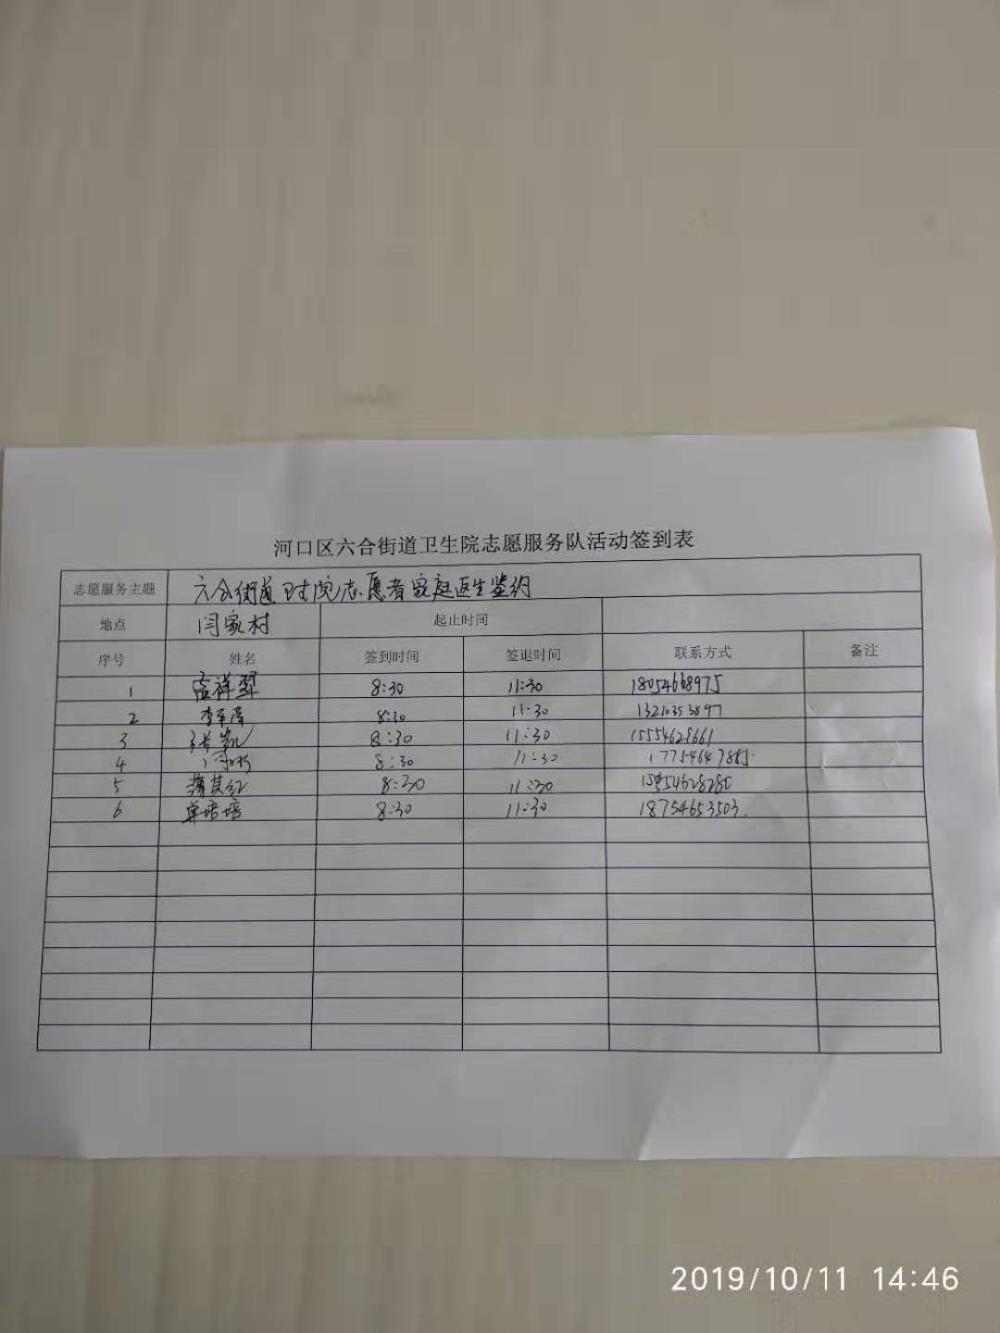 河口区六合街道卫生院志愿服务队活动签到表
志愿服务主题 六合街道卫生院志愿者家庭医生签约
地点 闫家村 起止时间
序号 姓名 签到时间 签退时间 联系方式 备注
1 8:30 11:30 18054668975
2 8:30 11:30 13210353897
3 张凯 8:30 11:30 15554628661
4 8:30 11:30
5 薄其红 8:30 11:30
6 单培培 8:30 11:30 18754653503
2019/10/11 14:46